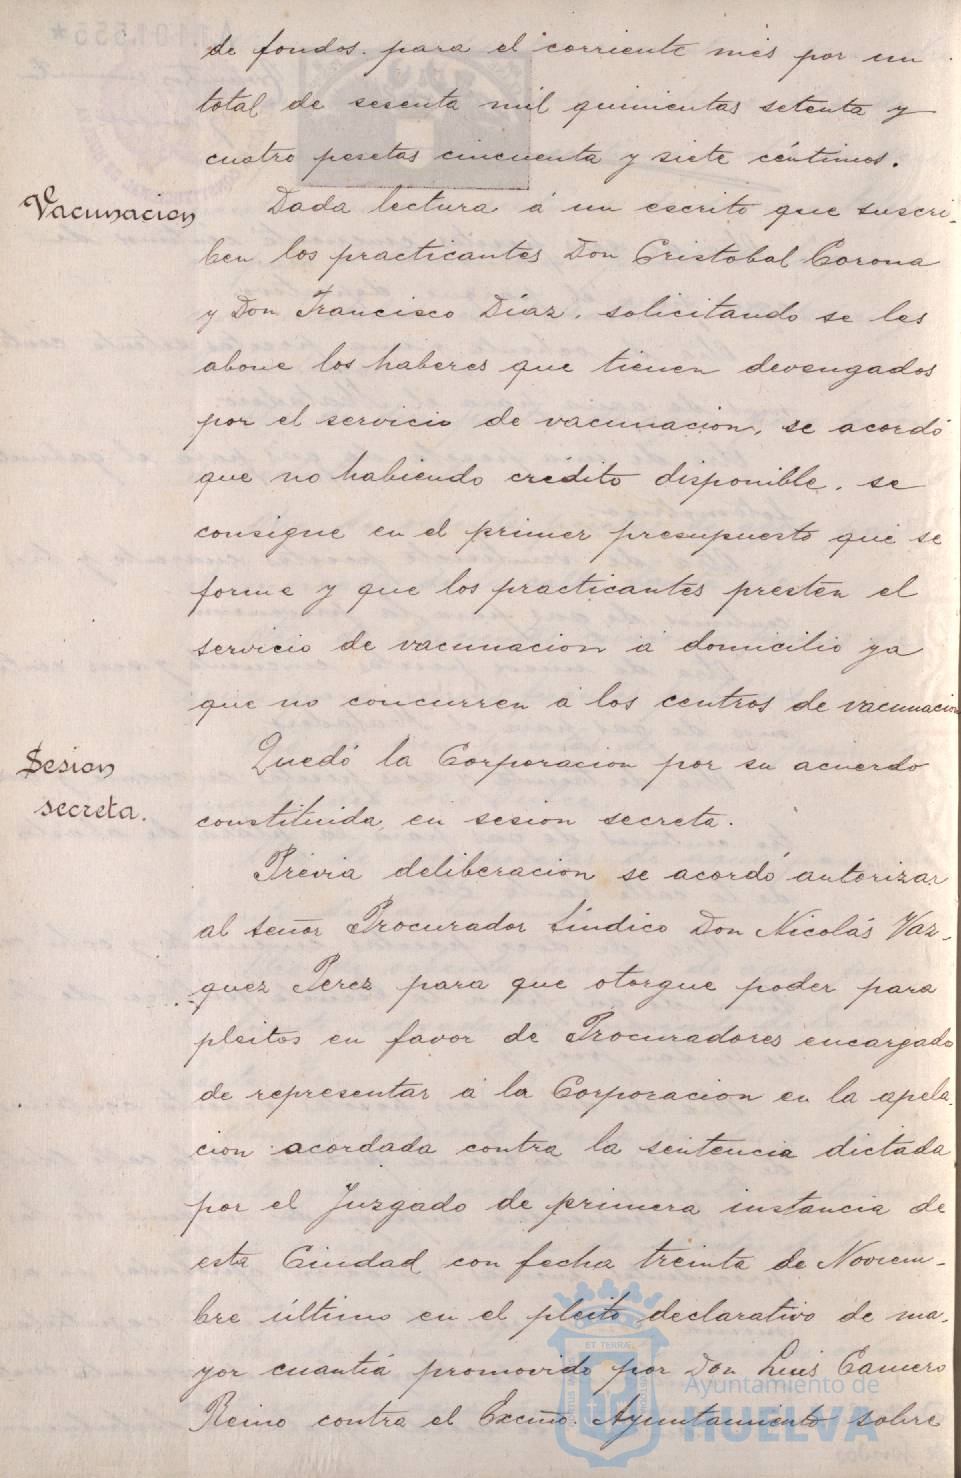 de fondos para el corriente mes por un
total de sesenta mil quinientas setenta y
cuatro pesetas cincuenta y siete céntimos.
Vacunacion
Dada lectura á un escrito que suscri-
ben los practicantes Don Cristobal Corona
y Don Francisco Díaz, solicitando se les
abone los haberes que tienen devengados
por el servicio de vacunacion, se acordó
que no habiendo crédito disponible, se
consigne en el primer presupuesto que se
forme y que los practicantes presten el
servicio de vacunacion á domicilio ya
que no concurren á los centros de vacunacion
Sesion
secreta.
Quedó la Corporacion por su acuerdo
constituida en sesion secreta.
Prévia deliberacion se acordó autorizar
al señor Procurador Síndico Don Nicolás Vaz-
quez Perez para que otorgue poder para
pleitos en favor de Procuradores encargado
de representar á la Corporacion en la apela-
cion acordada contra la sentencia dictada
por el Juzgado de primera instancia de
esta Ciudad con fecha treinta de Noviem-
bre último en el pleito declarativo de ma-
yor cuantía promovido por Don Luis
Reino contra el Excmo. Ayuntamiento sobre
Ayuntamiento de
HUELVA